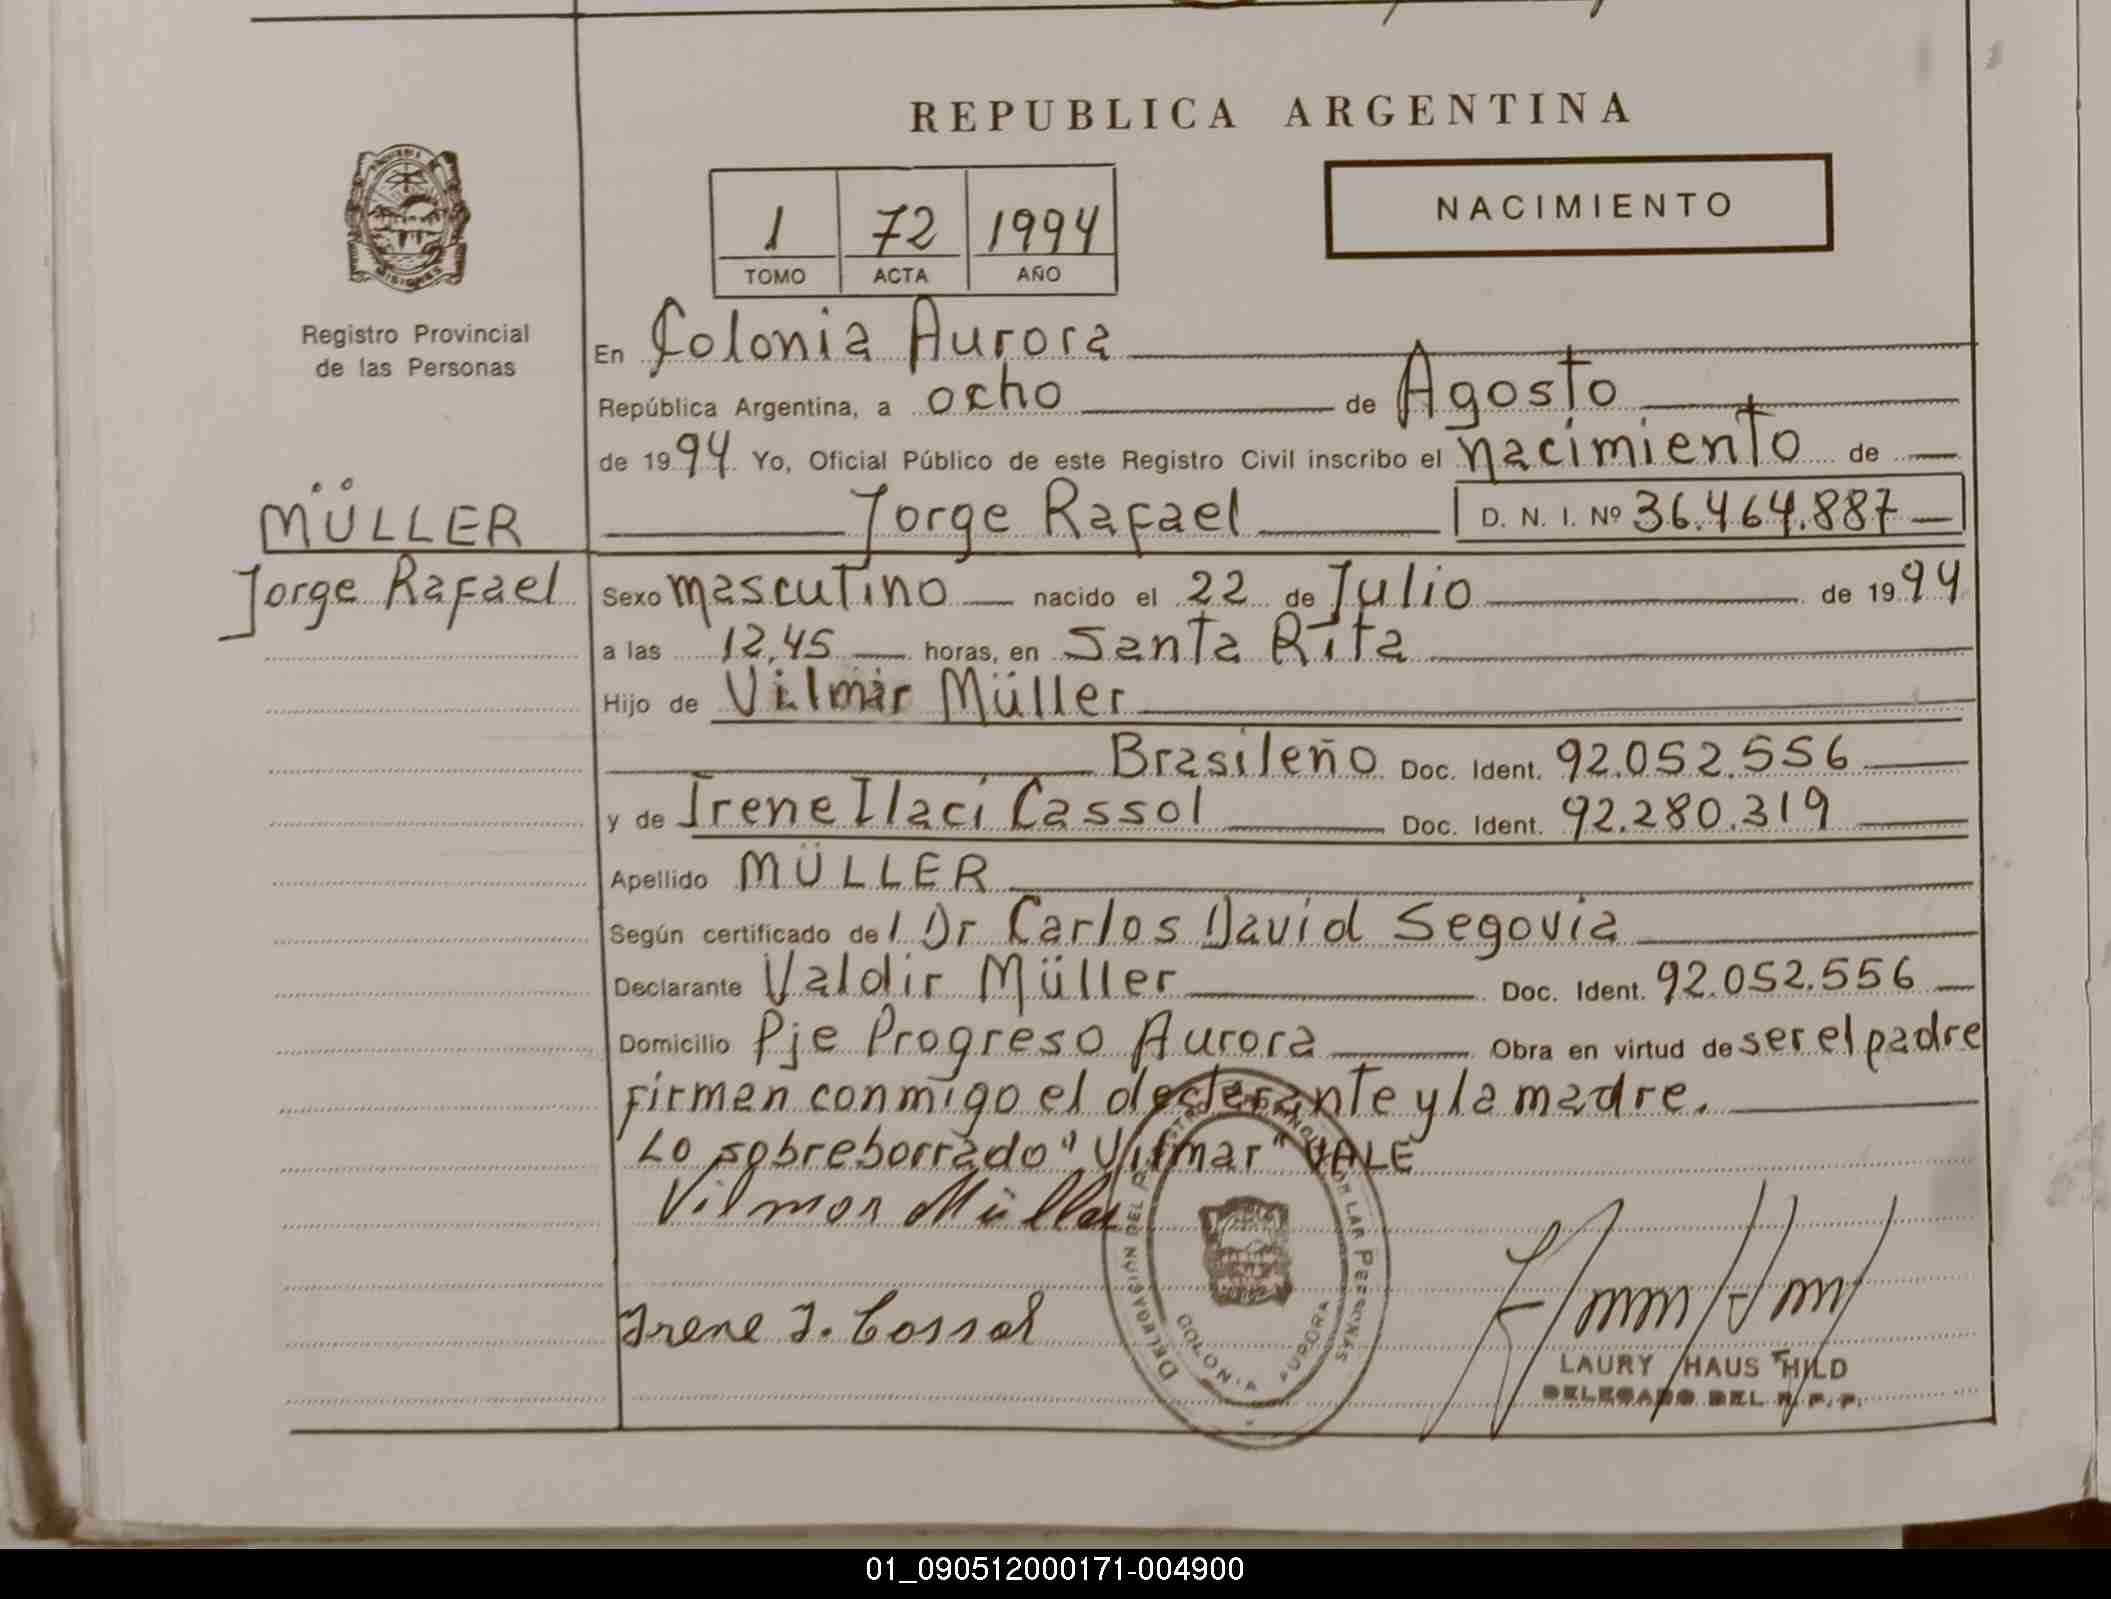 REPUBLICA ARGENTINA
1 72 1994
TOMO ACTA AÑO
NACIMIENTO
MISIONES
Registro Provincial
de las Personas
En Colonia Aurora
República Argentina, a ocho de Agosto
de 1994 Yo, Oficial Público de este Registro Civil inscribo el nacimiento de
Jorge Rafael D. N. I. Nº 36.464.887
MÜLLER
Jorge Rafael
Sexo mascutino nacido el 22 de Julio de 1994
a las 12,45 horas, en Santa Rita
Hijo de Vilmar Müller
Brasileño Doc. Ident. 92.052.556
y de Irene Ilaci Cassol Doc. Ident. 92.280.319
Apellido MÜLLER
Según certificado del Dr Carlos David Segovia
Declarante Valdir Müller Doc. Ident. 92.052.556
Domicilio Pje Progreso Aurora Obra en virtud de ser el padre
firman conmigo el declarante y la madre.
Lo sobreborrado "Vilmar" VALE
Vilmar Müller
Irene I. Cassol
COLONIA AURORA
LAURY HAUS HILD
DELEGADO DEL R. P. P.
01_090512000171-004900